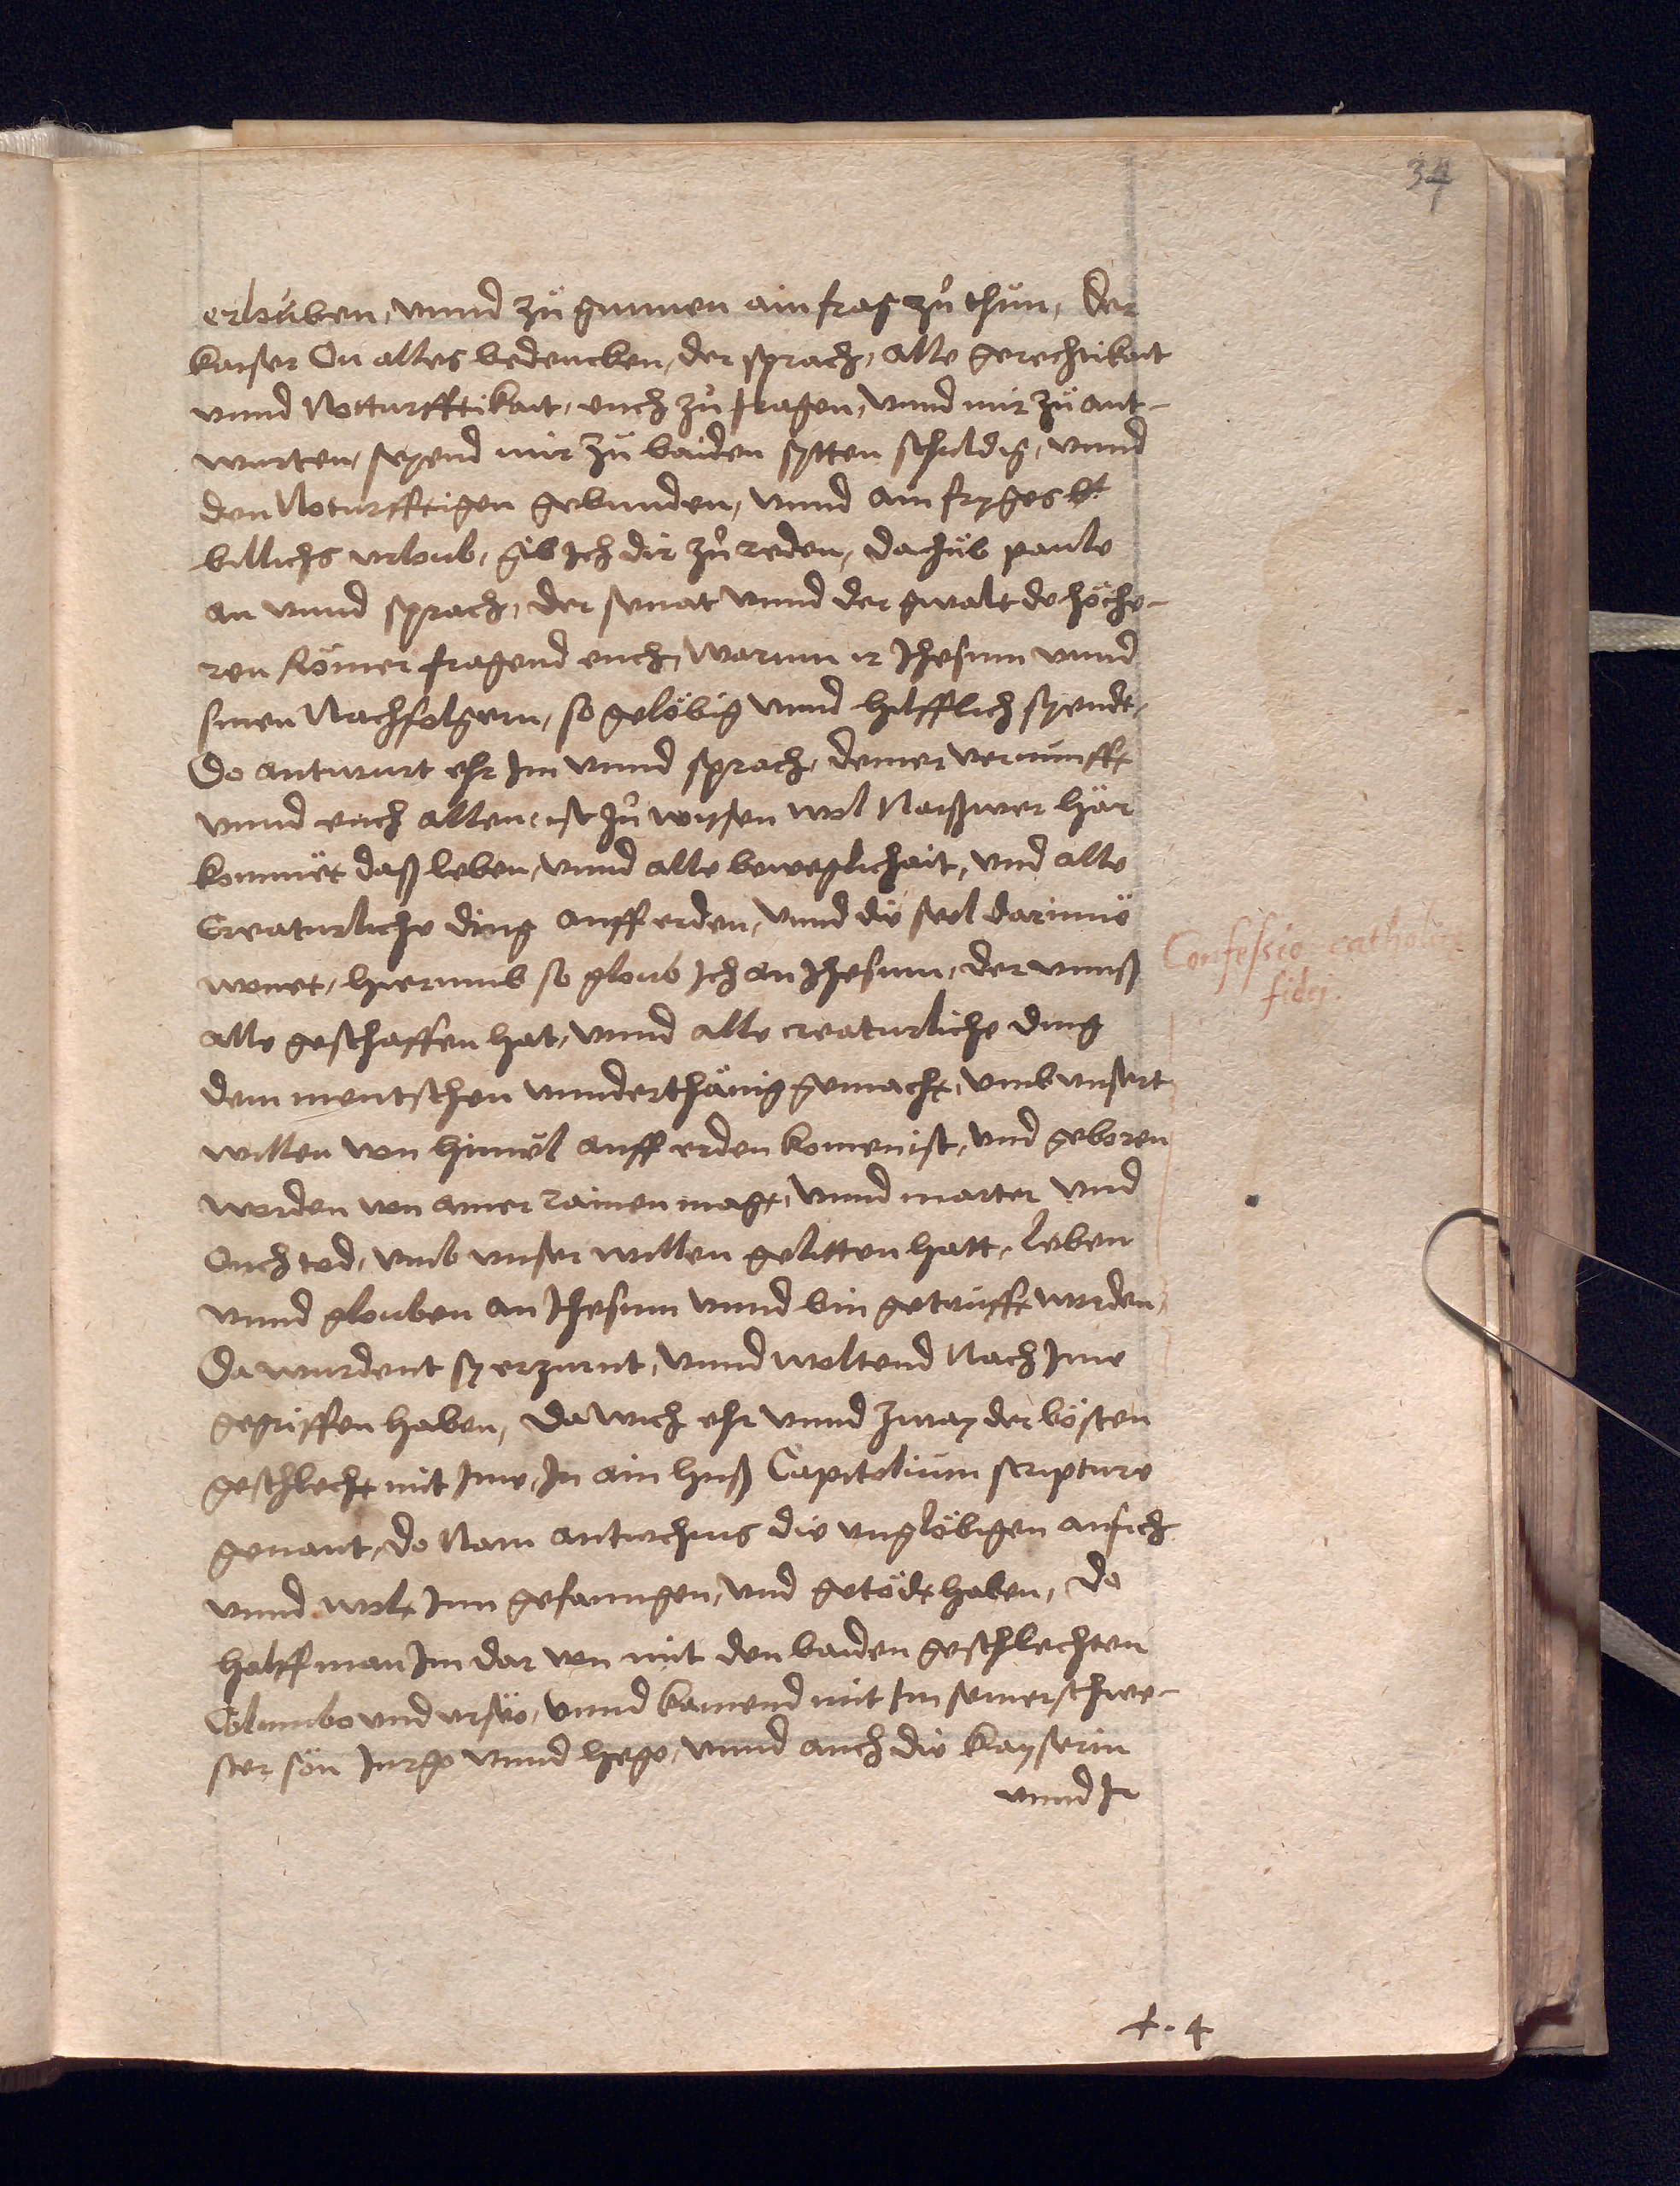 34
erlouben, vnnd zů gunnen ain frag zů thůn, der
kaiser On alles bedencken, der sprach, alle gerechtikait
vnnd Notturfftikait, euch zů fragen, vnnd mir zů ant-
wurten, seyend mir zů baiden sytten schuldig, vnnd
den Noturfftigen gebunden, vnnd ain fryges
billichs vrloub, gib Ich dir zů reden, da hůb paule
an vnnd sprach, der senat vnnd der gwalt de höche-
ren Römer fragend euch, warum ir Jhesum vnnd
sinen Nachfolgern, so gelöbig vnnd hilfflich syendt,
Do antwurt ehr Im vnnd sprach, deiner vernunfft
vnnd euch allen, ist zů wyssen wol Naißwer här
kommet daß leben, vnnd alle beweglichait, vnd alle
Creaturliche ding auff erden, vnnd die seel darinne
wonet, hierumb so gloub Ich an Jhesum, der vnnß
alle geschaffen hat, vnnd alle creaturliche ding
dem mentschen vnnderthänig gemacht, vmb vnsert
willen von himel auff erden komen ist, vnd geboren
worden von ainer rainen magt, vnnd marter vnd
Ouch tod, vmb vnser willen gelitten hatt, leben
vnnd glouben an Jhesum vnnd bin getaufft worden,
Da wurdent sy erzurnt, vnnd woltend Nach Ime
gegriffen haben, da wich ehr vnnd zway der bösten
geschlecht mit Ime, In ain huß Capitolium scripture
genant, do Nam anttiochus die vnglöbigen an sich
vnnd wolt Inn gefanngen, vnd getödt haben, do
halff man Im dar von mit den baiden geschlechten
Columbo vnd vrseo, vnnd kamend mit Im seiner schwe-
ster sön Jurgo vnnd hego, vnnd auch die kayserin
vnnd Ir
Confessio catholice
fidei.
f. 4